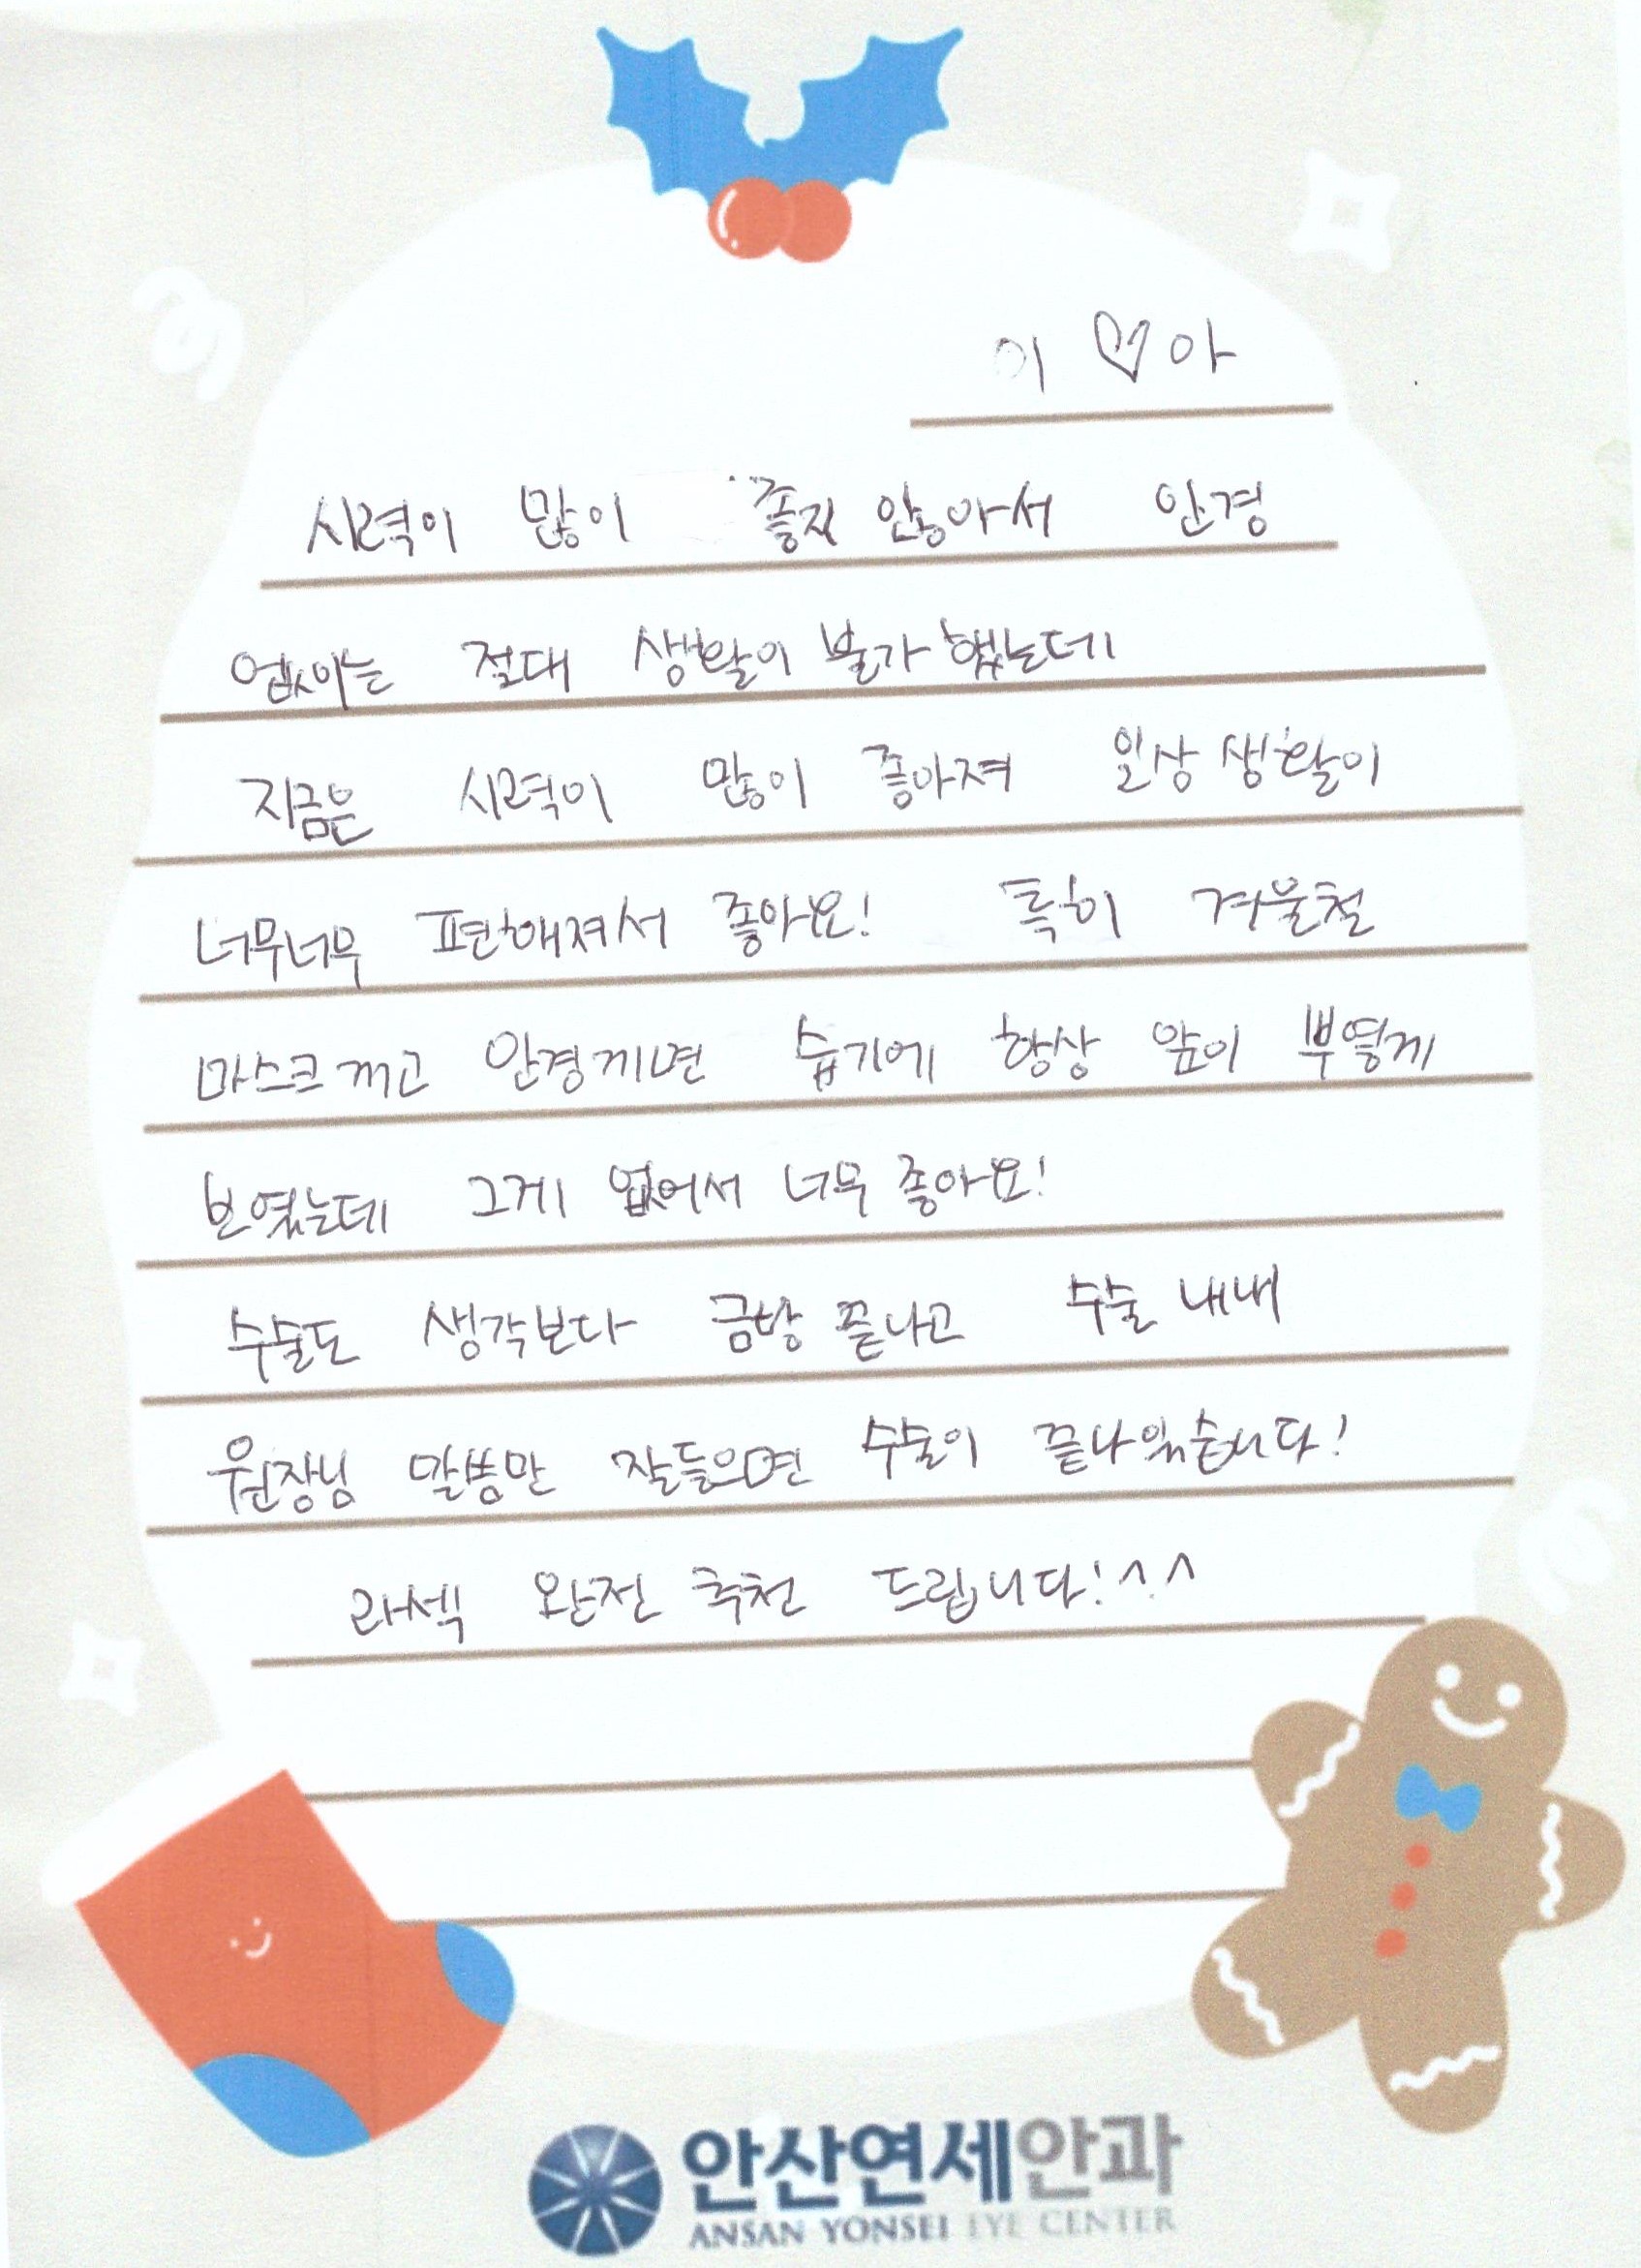 이 ♡ 아
시력이 많이 좋지 않아서 안경
없이는 절대 생활이 불가했는데
지금은 시력이 많이 좋아져 일상생활이
너무너무 편해져서 좋아요! 특히 겨울철
마스크 끼고 안경끼면 습기에 항상 앞이 뿌옇게
보였는데 그게 없어서 너무 좋아요!
수술도 생각보다 금방 끝나고 수술 내내
원장님 말씀만 잘들으면 수술이 끝나있습니다!
라섹 완전 추천 드립니다!^^
안산연세안과
ANSAN YONSEI EYE CENTER